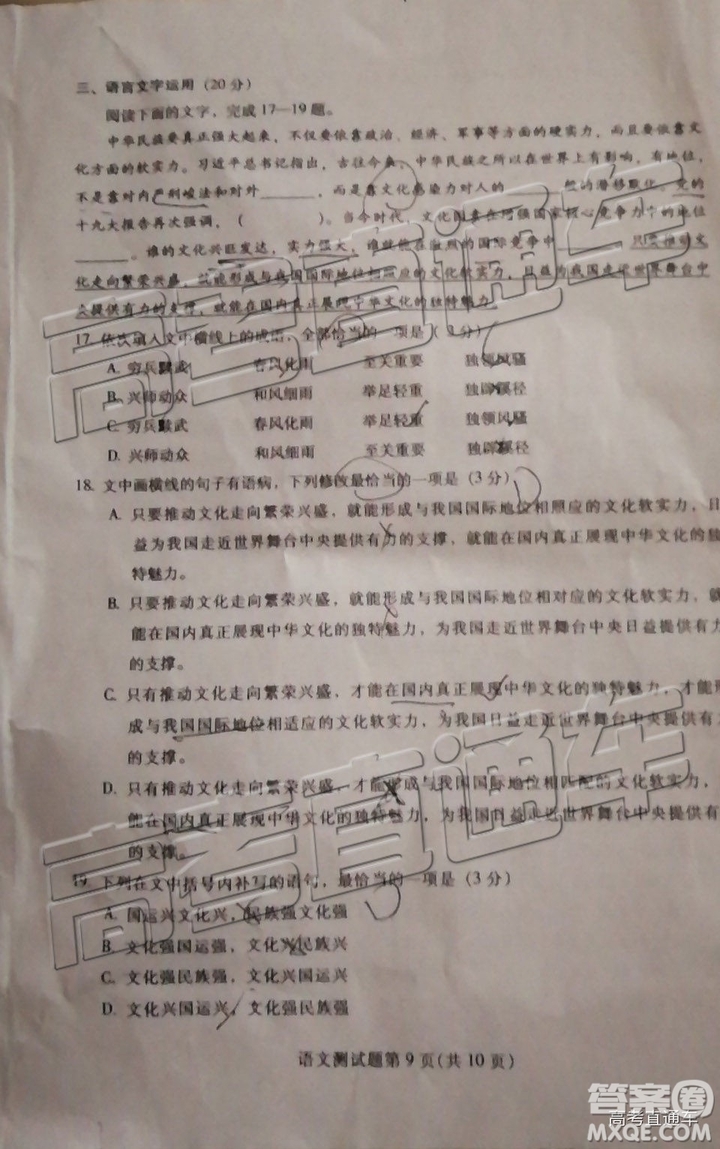 三、语言文字运用（20分）
阅读下面的文字，完成17—19题。
中华民族要真正强大起来，不仅要依靠政治、经济、军事等方面的硬实力，而且要依靠文
化方面的软实力。习近平总书记指出，古往今来，中华民族之所以在世界上有影响，有地位，
不是靠对内严刑峻法和对外______，而是靠文化感染力对人的______般的潜移默化。党的
十九大报告再次强调，（　　　）。当今时代，文化因素在增强国家核心竞争力中的地位
______。谁的文化兴旺发达，实力强大，谁就能在激烈的国际竞争中______，只要推动文
化走向繁荣兴盛，就能形成与我国国际地位相应的文化软实力，日益为我国走近世界舞台中
央提供有力的支撑，就能在国内真正展现中华文化的独特魅力
17. 依次填入文中横线上的成语，全部恰当的一项是（3分）
A. 穷兵黩武　春风化雨　至关重要　独领风骚
B. 兴师动众　和风细雨　举足轻重　独辟蹊径
C. 穷兵黩武　春风化雨　举足轻重　独领风骚
D. 兴师动众　和风细雨　至关重要　独辟蹊径
18. 文中画横线的句子有语病，下列修改最恰当的一项是（3分）
A. 只要推动文化走向繁荣兴盛，就能形成与我国国际地位相照应的文化软实力，日
益为我国走近世界舞台中央提供有力的支撑，就能在国内真正展现中华文化的独
特魅力。
B. 只要推动文化走向繁荣兴盛，就能形成与我国国际地位相对应的文化软实力，就
能在国内真正展现中华文化的独特魅力，为我国走近世界舞台中央日益提供有力
的支撑。
C. 只有推动文化走向繁荣兴盛，才能在国内真正展现中华文化的独特魅力，才能形
成与我国国际地位相适应的文化软实力，为我国日益走近世界舞台中央提供有力
的支撑。
D. 只有推动文化走向繁荣兴盛，才能形成与我国国际地位相匹配的文化软实力，才
能在国内真正展现中华文化的独特魅力，为我国日益走近世界舞台中央提供有力
的支撑。
19. 下列在文中括号内补写的语句，最恰当的一项是（3分）
A. 国运兴文化兴，民族强文化强
B. 文化强国运强，文化兴民族兴
C. 文化强民族强，文化兴国运兴
D. 文化兴国运兴，文化强民族强
语文测试题第9页(共10页)
高考直通车
高考直通车
答案圈
高考直通车
MXQE.COM